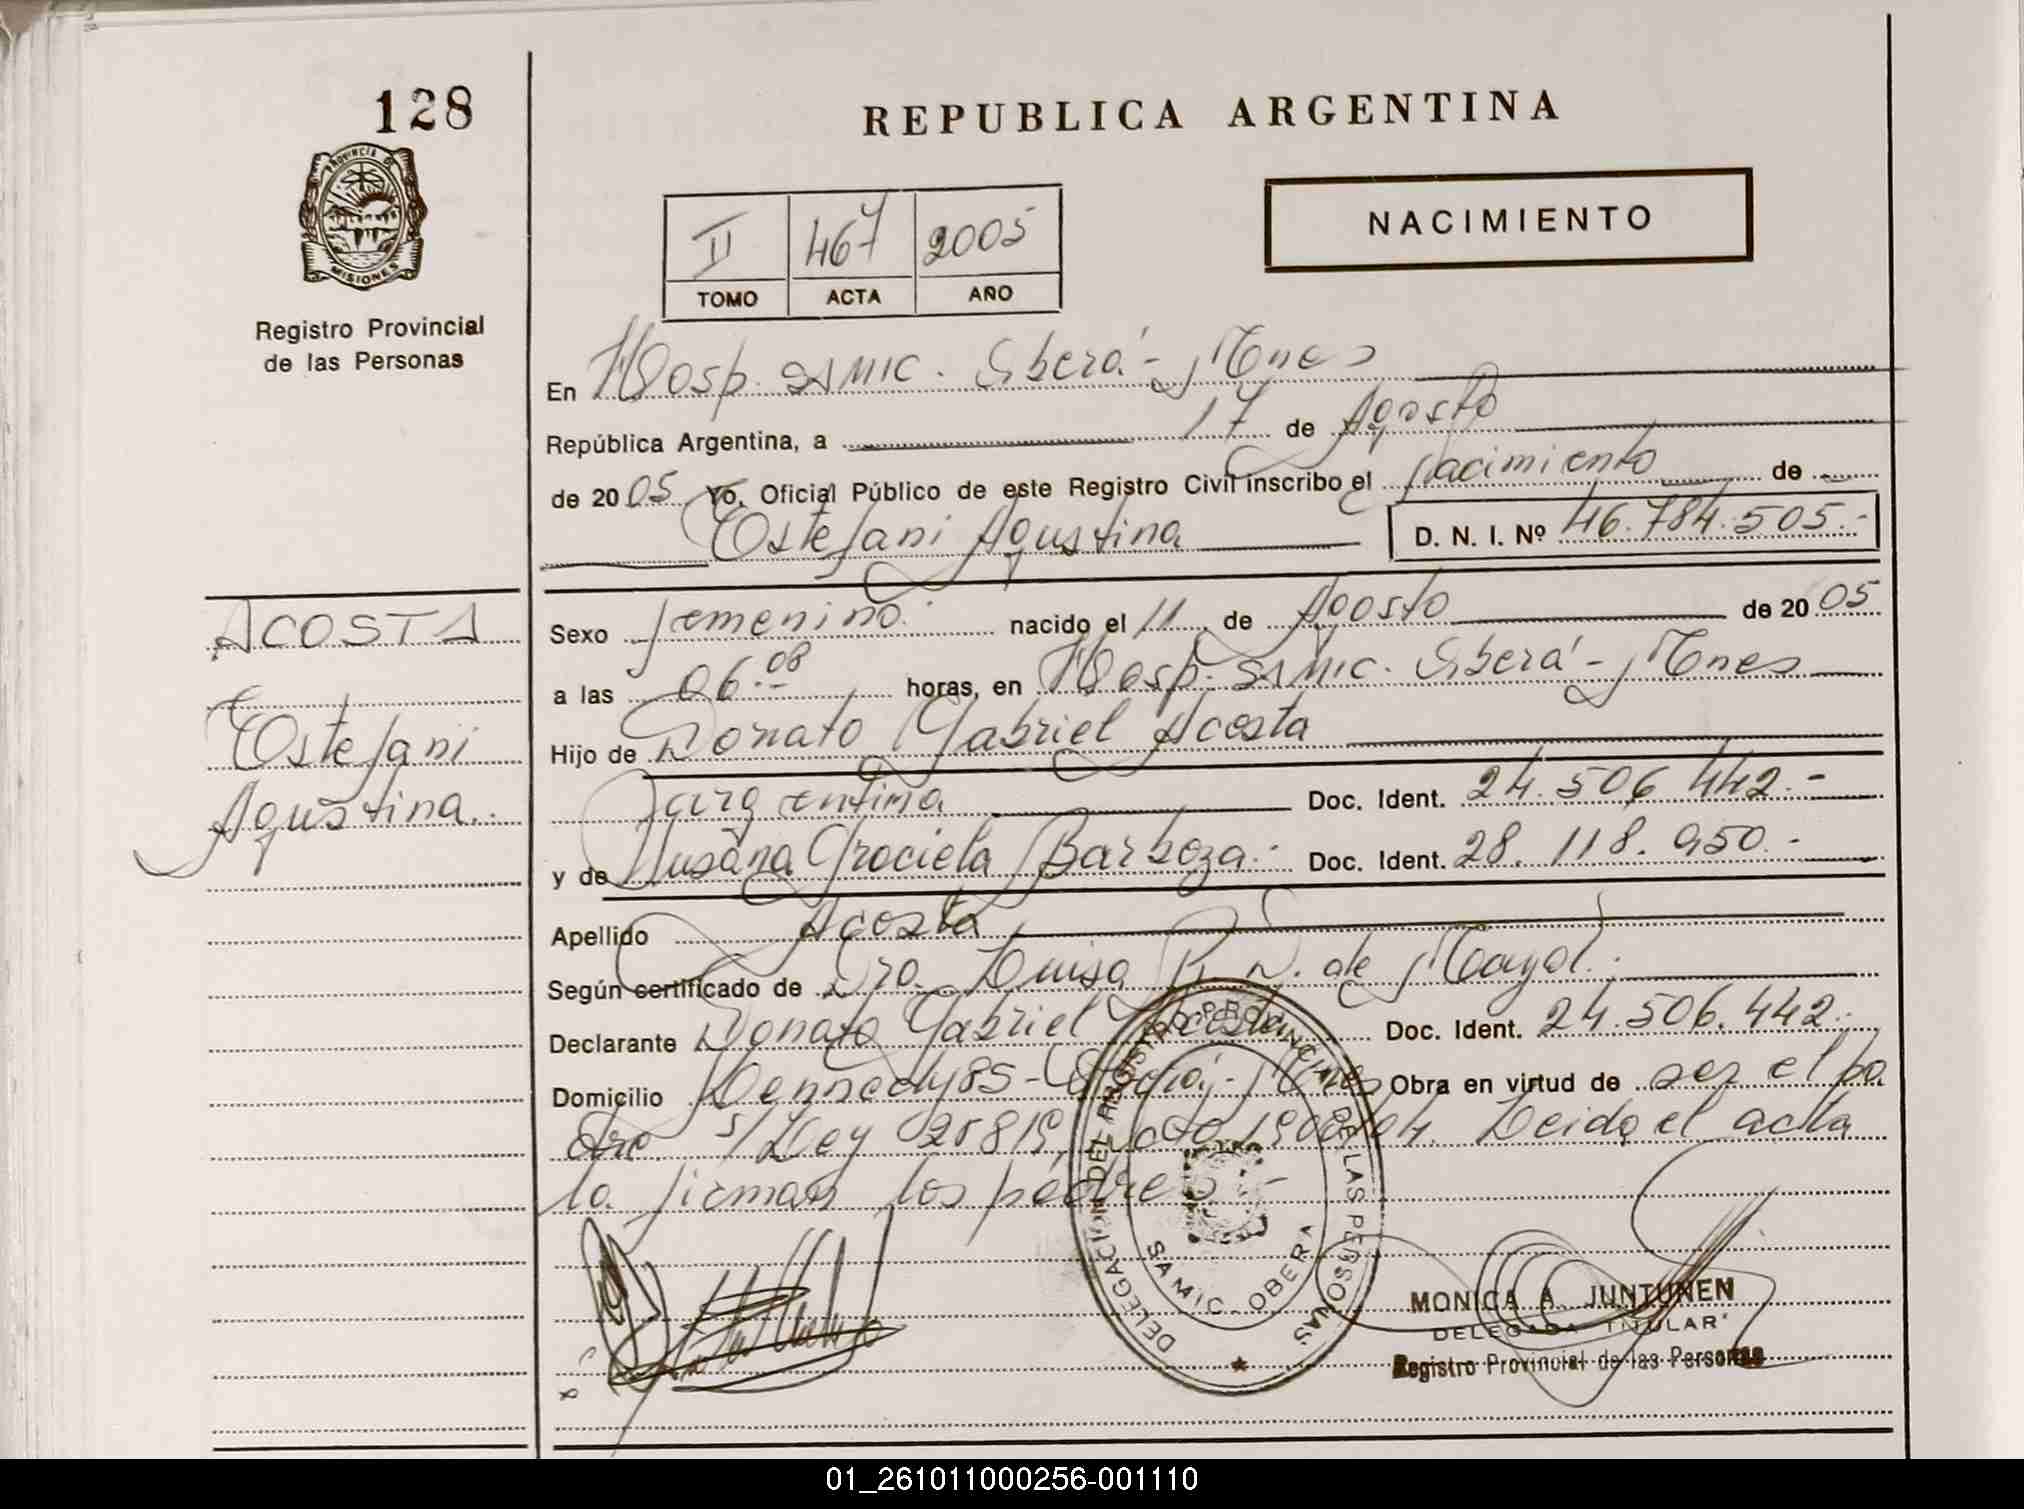 128
PROVINCIA DE
MISIONES
Registro Provincial
de las Personas
REPUBLICA ARGENTINA
NACIMIENTO
II 467 2005
TOMO ACTA AÑO
En Hosp. SAMIC. Oberá - Mnes
República Argentina, a 17 de Agosto
de 2005 Yo, Oficial Público de este Registro Civil inscribo el Nacimiento de
Estefani Agustina D. N. I. Nº 46.784.505.-
ACOSTA
Estefani
Agustina.
Sexo femenino. nacido el 11 de Agosto de 2005
a las 06.08 horas, en Hosp. SAMIC. Oberá - Mnes
Hijo de Donato Gabriel Acosta
argentina Doc. Ident. 24.506.442.-
y de Susana Graciela Barboza.- Doc. Ident. 28.118.950.-
Apellido Acosta
Según certificado de Dra. Luisa R. N. de Mayol.
Declarante Donato Gabriel Acosta Doc. Ident. 24.506.442.-
Domicilio Kennedy 85 - Oberá - Mnes Obra en virtud de ser el pa
dre s/Ley 25819, Leida el acta
la firman los padres.-
DELEGACION DEL REGISTRO PROVINCIAL DE LAS PERSONAS
SAMIC - OBERA
MONICA A. JUNTUNEN
DELEGADA TITULAR
Registro Provincial de las Personas
01_261011000256-001110